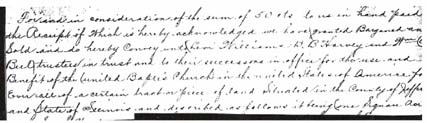 For and in consideration of the sum of 50 cts to us in hand paid
the Receipt of Which is hereby acknowledged we have granted Bargained an
Sold and do hereby Convey unto Williams. H. B. Harvey and
trustees in trust and to their successors in office for the use and
Benefit of the United Baptis Church in the united States of America fo
of a certain tract or piece of land Situated in the County of Jeffe
and State of Illinois and described as follows it being one Square Acr